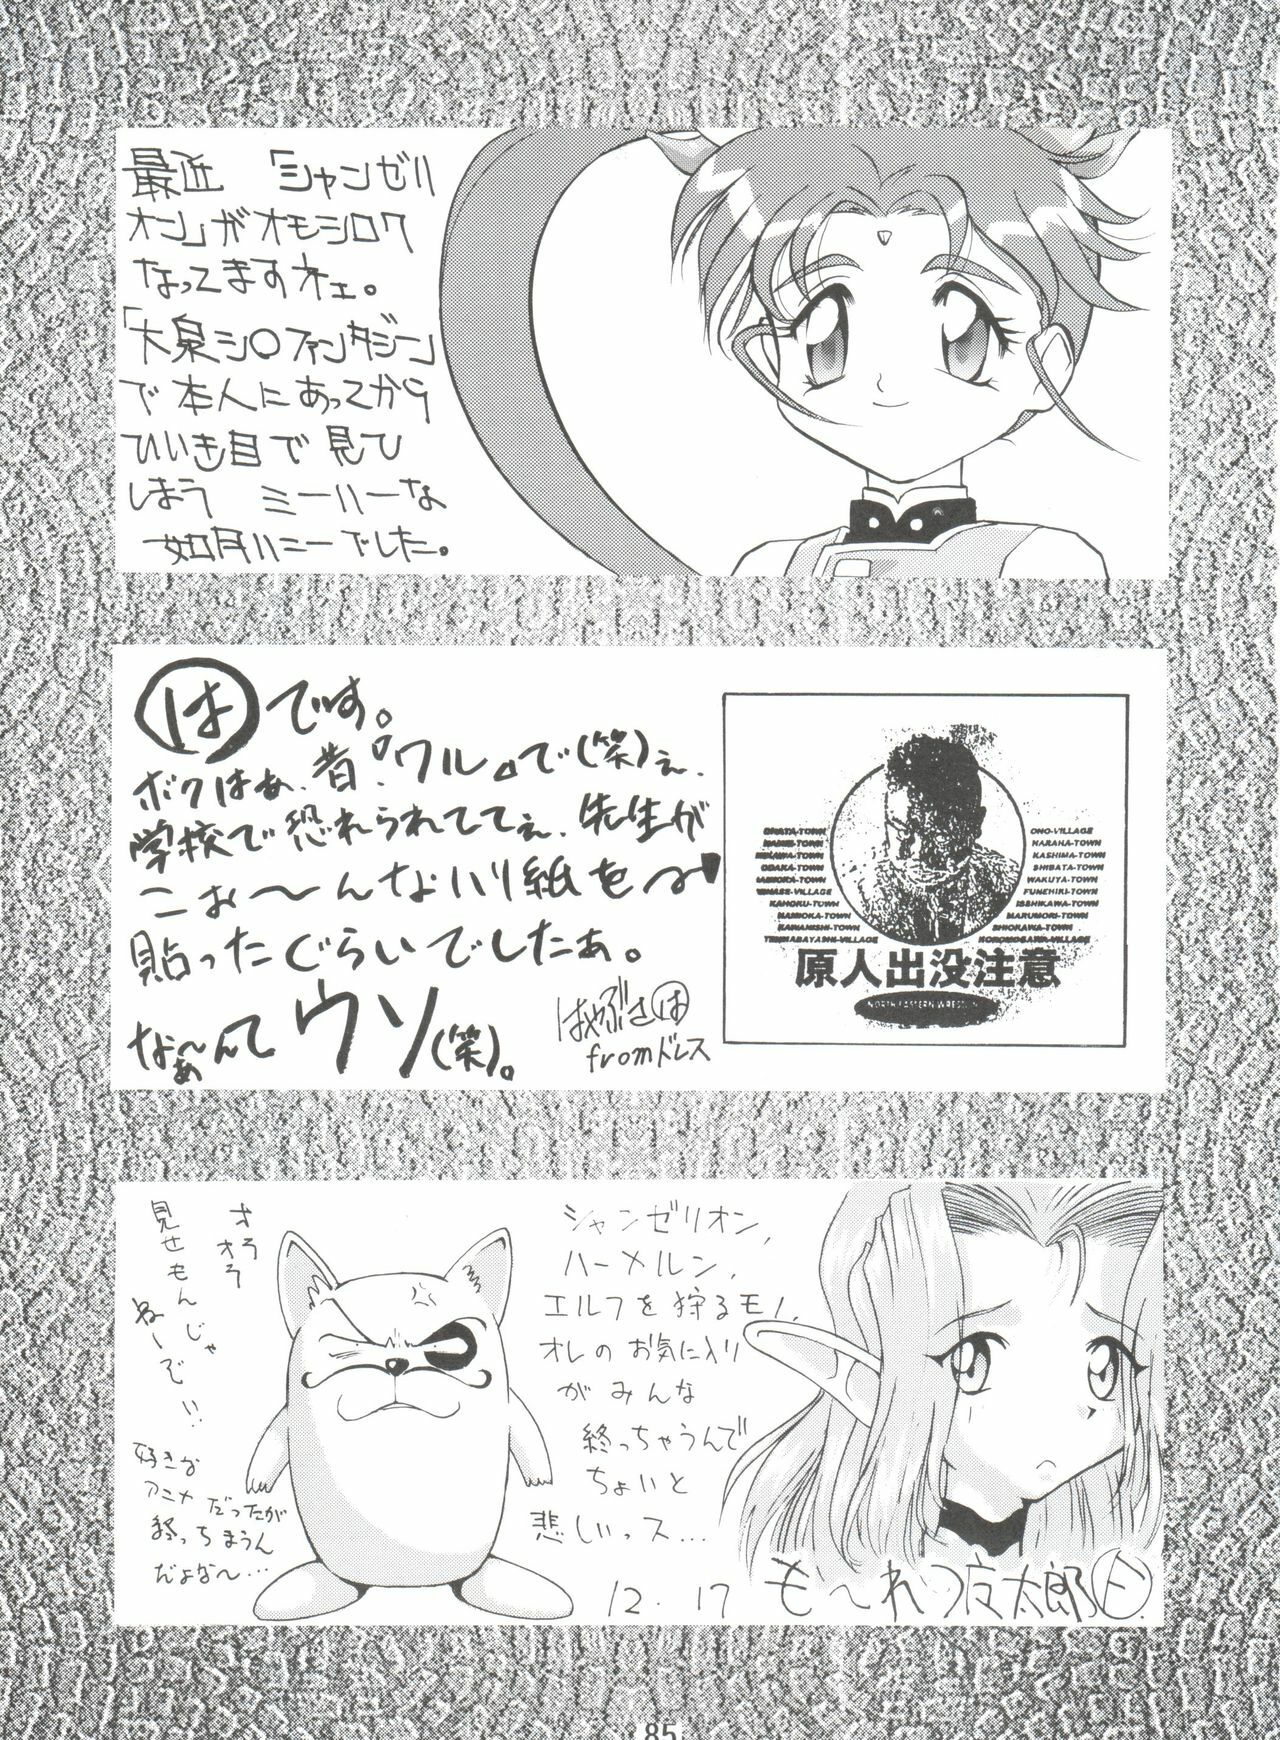 最近 「シャンゼリ
オン」がオモシロク
なってますネェ。
「大泉シ〇ファンタジー」
で本人にあってから
ひいき目で見ひ
しまう ミーハーな
如月ハニーでした。
はです。
ボクはぁ、昔『ワル』で(笑)ぇ、
学校で恐れられててぇ、先生が
こぉ〜んなハリ紙を
貼ったぐらいでしたぁ。
なぁ〜んてウソ(笑)。
はやぶさは
fromドレス
OHATA-TOWN
ONO-VILLAGE
NARAHA-TOWN
KASHIMA-TOWN
ODAKA-TOWN
SHIBATA-TOWN
WAKUYA-TOWN
FUNEHIKI-TOWN
KAHOKU-TOWN
ISSHIKAWA-TOWN
NAMIOKA-TOWN
MARUMORI-TOWN
KAWANISHI-TOWN
SHIOKAWA-TOWN
TENNABAYASHI-VILLAGE
KOROMOGAWA-VILLAGE
原人出没注意
NORTH EASTERN WRESTLIN
オラオラ
見せもんじゃ
ねーで!!
好きな
アニメだったが
終っちまうん
だよな〜…
シャンゼリオン、
ハーメルン、
エルフを狩るモノ、
オレのお気に入り
がみんな
終っちゃうんで
ちょいと
悲しいっス…
12.17
も〜れつ夜太郎
85